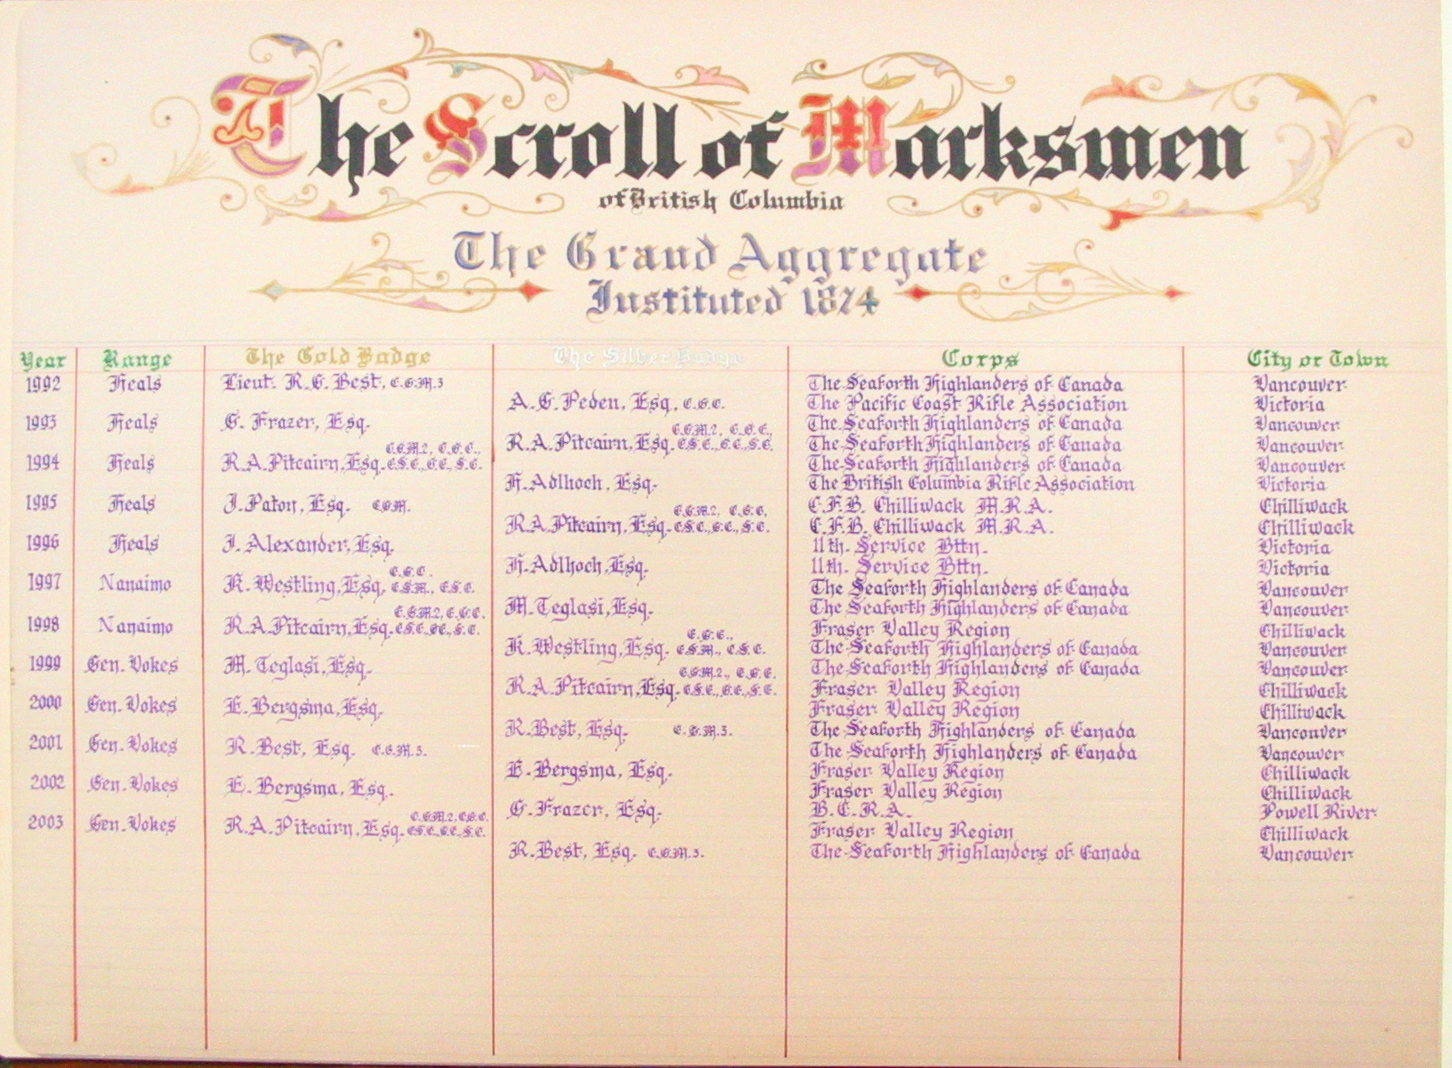 The Scroll of Marksmen
of British Columbia
The Grand Aggregate
Instituted 1874
Year Range The Gold Badge The Silver Badge Corps City or Town
1992 Heals Lieut. R.G. Best, C.G.M.3 The Seaforth Highlanders of Canada Vancouver
A.G. Peden, Esq., C.G.C. The Pacific Coast Rifle Association Victoria
1993 Heals G. Frazer, Esq. The Seaforth Highlanders of Canada Vancouver
R.A. Pitcairn, Esq. C.G.M.2, C.G.C., C.S.C., G.C., S.C. The Seaforth Highlanders of Canada Vancouver
1994 Heals R.A. Pitcairn, Esq. C.G.M.2, C.G.C., C.S.C., G.C., S.C. The Seaforth Highlanders of Canada Vancouver
H. Adlhoch, Esq. The British Columbia Rifle Association Victoria
1995 Heals J. Paton, Esq. C.G.M. C.F.B. Chilliwack M.R.A. Chilliwack
R.A. Pitcairn, Esq. C.G.M.2, C.G.C. C.S.C., G.C., S.C. C.F.B. Chilliwack M.R.A. Chilliwack
1996 Heals J. Alexander, Esq. 11th. Service Bttn. Victoria
H. Adlhoch, Esq. 11th. Service Bttn. Victoria
1997 Nanaimo K. Westling, Esq. C.G.C. C.S.M., C.S.C. The Seaforth Highlanders of Canada Vancouver
M. Teglasi, Esq. The Seaforth Highlanders of Canada Vancouver
1998 Nanaimo R.A. Pitcairn, Esq. C.G.M.2, C.G.C. C.S.C., G.C., S.C. Fraser Valley Region Chilliwack
K. Westling, Esq. C.G.C., C.S.M., C.S.C. The Seaforth Highlanders of Canada Vancouver
1999 Gen. Vokes M. Teglasi, Esq. The Seaforth Highlanders of Canada Vancouver
R.A. Pitcairn, Esq. C.G.M.2, C.G.C. C.S.C., G.C., S.C. Fraser Valley Region Chilliwack
2000 Gen. Vokes E. Bergsma, Esq. Fraser Valley Region Chilliwack
R. Best, Esq. C.G.M.3. The Seaforth Highlanders of Canada Vancouver
2001 Gen. Vokes R. Best, Esq. C.G.M.3. The Seaforth Highlanders of Canada Vancouver
E. Bergsma, Esq. Fraser Valley Region Chilliwack
2002 Gen. Vokes E. Bergsma, Esq. Fraser Valley Region Chilliwack
G. Frazer, Esq. B.C.R.A. Powell River
2003 Gen. Vokes R.A. Pitcairn, Esq. C.G.M.2, C.G.C. C.S.C., G.C., S.C. Fraser Valley Region Chilliwack
R. Best, Esq. C.G.M.3. The Seaforth Highlanders of Canada Vancouver